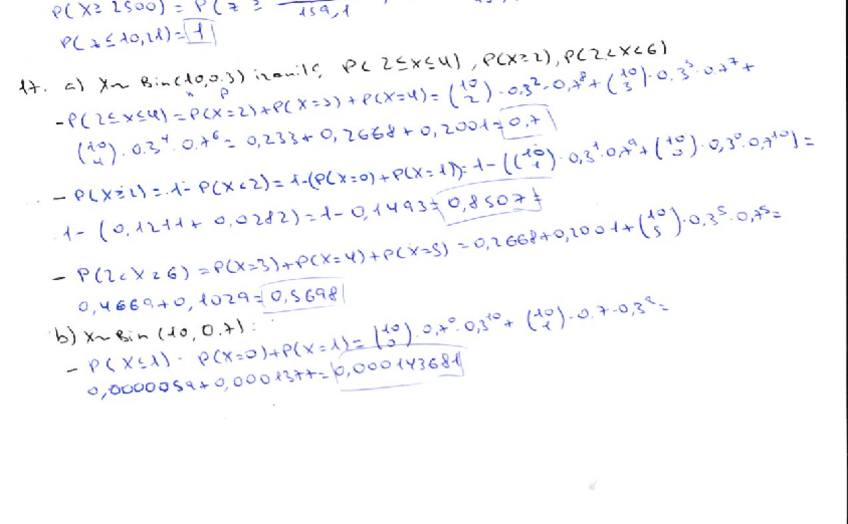 P(X≥2500) = P(Z ≥ ─── 159,1
P(Z ≤ 10,21) = 1
17. a) X~ Bin(10,0.3) izanik, P(2≤X≤4), P(X≥2), P(2<X<6)
n p
- P(2≤X≤4) = P(X=2)+P(X=3)+P(X=4) = (10 2)·0,3²·0,7⁸+(10 3)·0,3³·0,7⁷+
(10 4)·0.3⁴·0.7⁶ = 0,233+0,2668+0,2001 = 0,7
- P(X≥2) = 1- P(X<2) = 1-(P(X=0)+P(X=1)) = 1-((10 1)·0,3¹·0,7⁹+(10 0)·0,3⁰·0,7¹⁰) =
1-(0,1211+0,0282) = 1-0,1493 = 0,8507
- P(2<X<6) = P(X=3)+P(X=4)+P(X=5) = 0,2668+0,2001+(10 5)·0,3⁵·0,7⁵ =
0,4669+0,1029 = 0,5698
b) X~Bin(10,0.7):
- P(X≤1) = P(X=0)+P(X=1) = (10 0)·0,7⁰·0,3¹⁰+(10 1)·0.7·0,3⁹ =
0,0000059+0,0001377 = 0,000143681